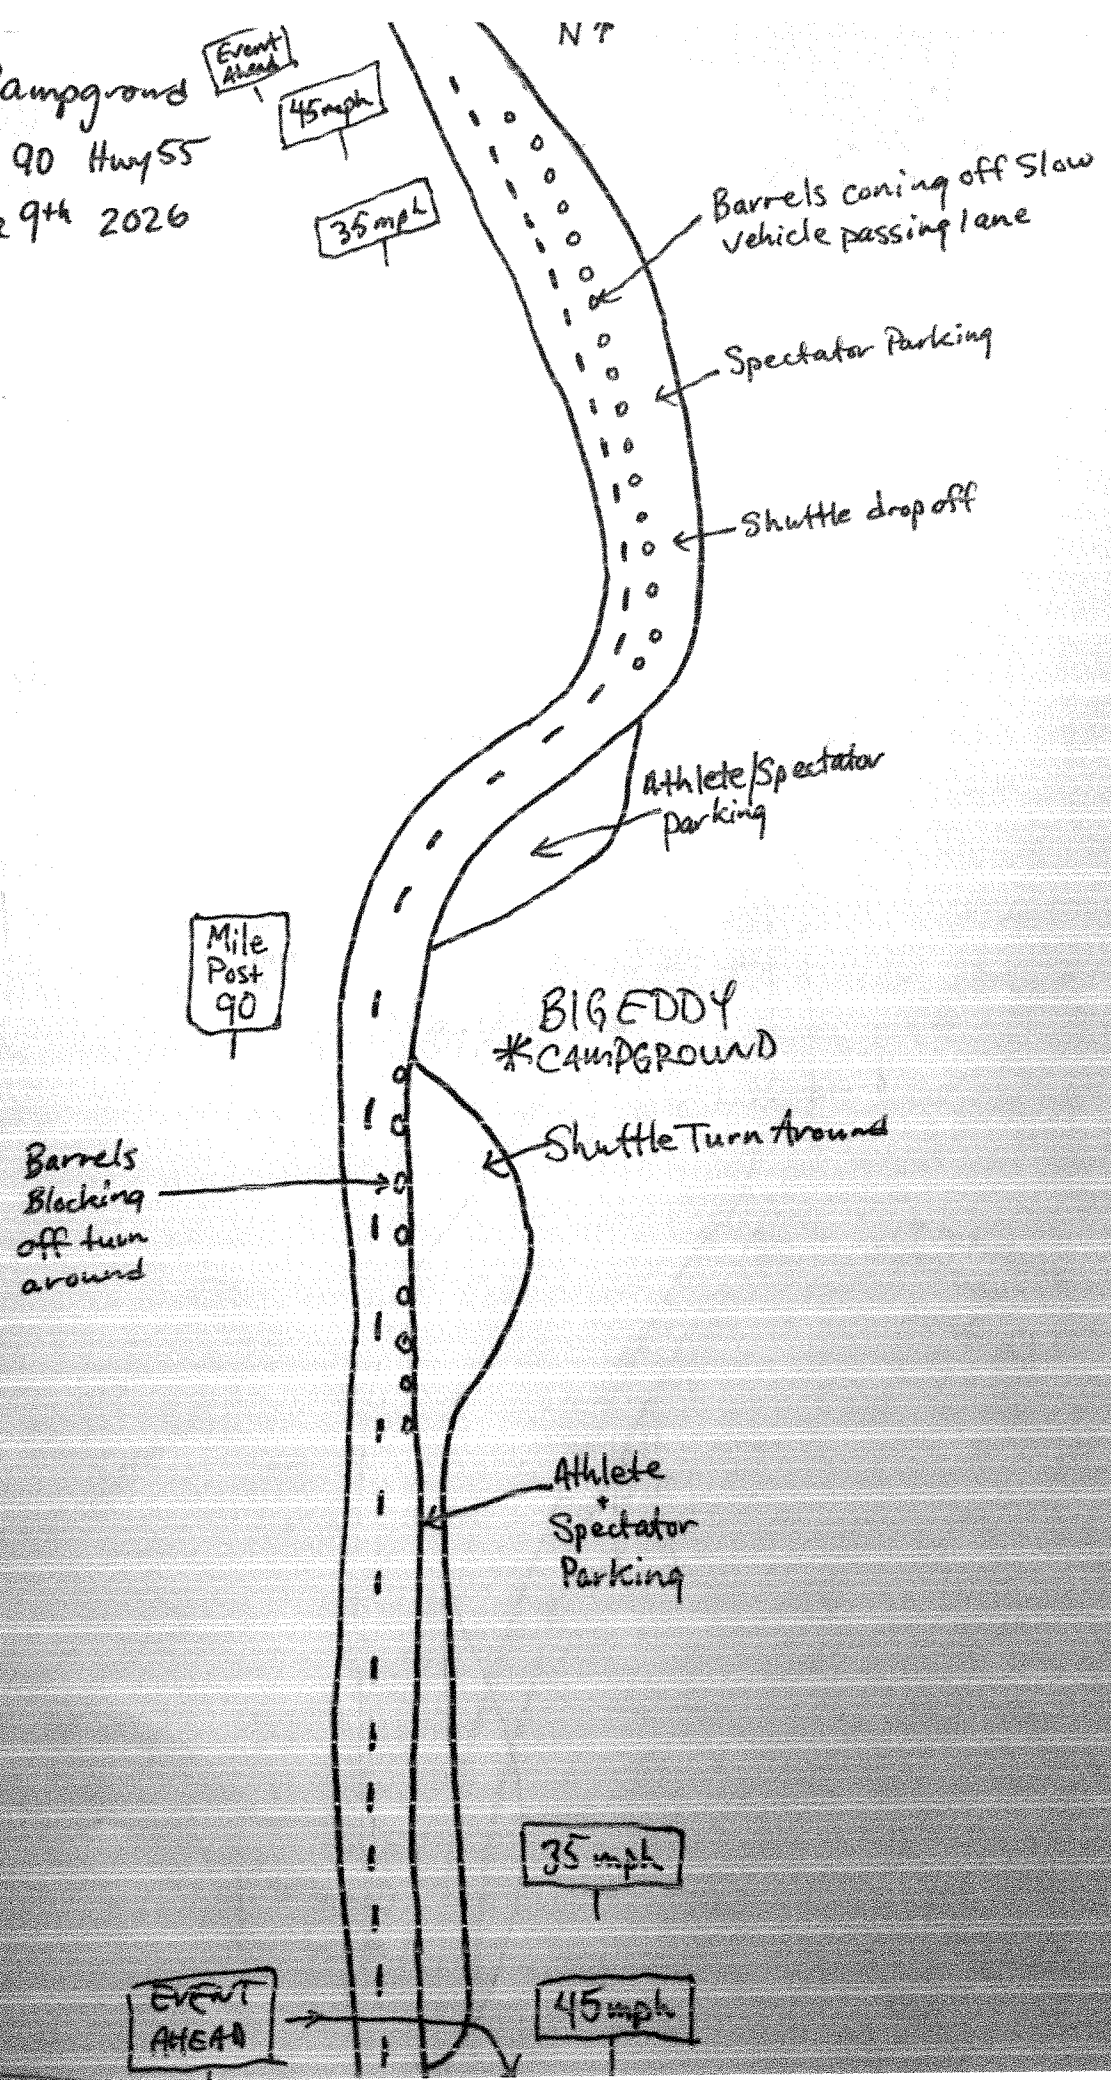 N ↑
Event
Ahead
45mph
Campground
90 Hwy 55
9th 2026
35mph
Barrels coning off Slow
vehicle passing lane
Spectator Parking
Shuttle drop off
Athlete/Spectator
Parking
Mile
Post
90
BIG EDDY
* CAMPGROUND
Shuttle Turn Around
Barrels
Blocking
off turn
around
Athlete
+
Spectator
Parking
35 mph
EVENT
AHEAD
45mph